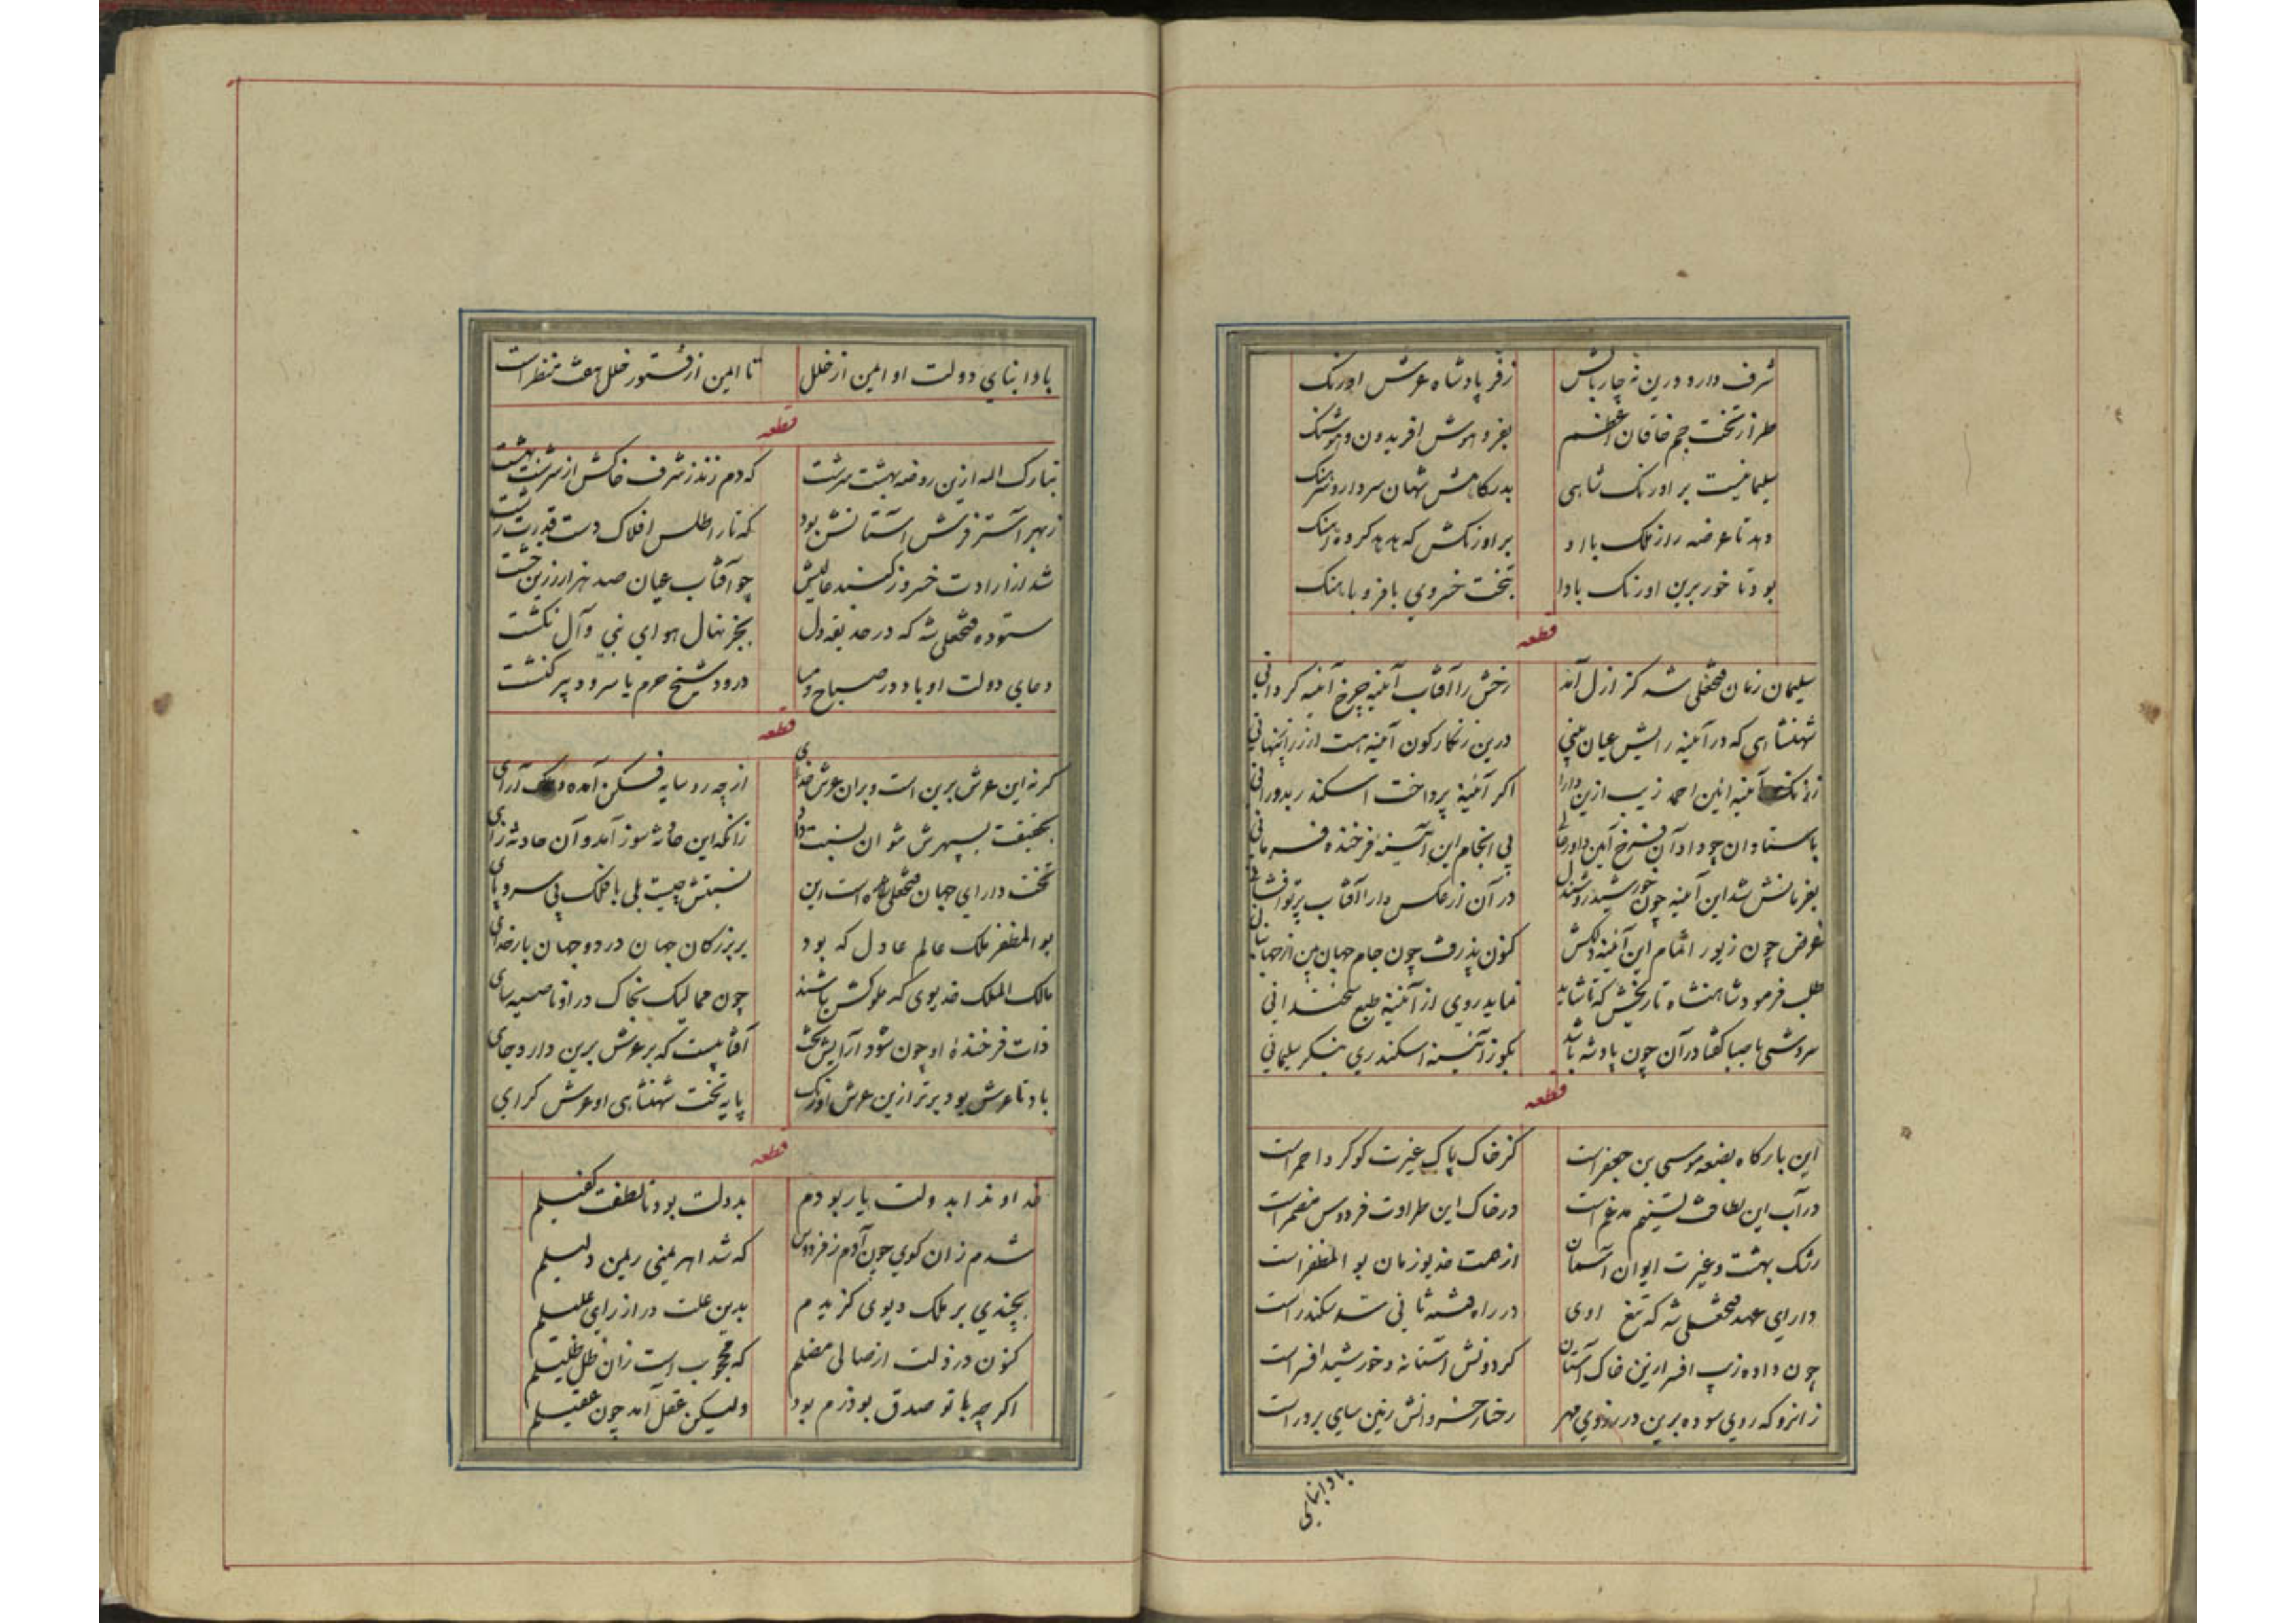 شرف دارد درین نه چار بالش زفر پادشاه عرش اورنک
طراز تخت جم خاقان اعظم بفر و هوش افریدون و هوشنک
سلیمانیست بر اورنک شاهی بدرکاهش شهان سردار و سرهنک
دهد تا عرضه راز ملک باد او بر اورنکش که هدهد کرده اهنک
بود تا خور برین اورنک بادا بتخت خسروی با فر و با هنک
قطعه
سلیمان زمان فتحعلی شه کز ازل آمد رخش را آفتاب آئینه چرخ آئینه کردانی
شهنشاهی که در آئینه رایش عیان بینی درین زنکارکون آئینه هست ار زر پنهانی
اکر آئینه پرداخت اسکندر بدورانی
باستادان چو داد آن فرخ آیین پی انجام این آئینه فرخنده فرمانی
بفرمانش شد این آئینه چون خورشید روشندل در آن از عکس دارا آفتاب پرتو افشانی
غرض چون زیور اتمام این آئینه دلکش کنون پذرفت چون جام جهان بین از جهانبانی
طلب فرمود شاهنشاه تاریخش که تا شاید نماید روی از آئینه طبع سخندانی
سروشی با صبا کفتا در آن چون پادشه باشد بکو ز آئینه اسکندری بنکر سلیمانی
قطعه
این بارکاه بضعه موسی بن جعفر است کز خاک پاک غیرت کوکرد احمر است
در آب این لطافت تسنیم مدغم است در خاک این طراوت فردوس مضمر است
رشک بهشت و غیرت ایوان آسمان از همت خدیو زمان بو المظفر است
دارای عهد فتحعلی شه که تیغ اوی در راه فتنه ثانی سد سکندر است
چون داده زیب افسر ازین خاک آستان کردونش آستانه و خورشید افسر است
زانرو که روی سوده برین در بروی مهر رخسار خسروانش زمین سای پرور است
بادا بنای
بادا بنای دولت او ایمن از خلل تا ایمن از فتور خلل هفت منظر است
قطعه
تبارک الله ازین روضه بهشت سرشت که دم زند ز شرف خاکش از سرشت بهشت
ز بهر آستر فرش آستانش بود که تار اطلس افلاک دست قدرت رشت
شد از ارادت خسرو ز کنبد عالیش چو آفتاب عیان صد هزار زرین خشت
ستوده فتحعلی شه که در حدیقه دل بجز نهال هوای نبی و آل نکشت
دعای دولت او باد در صباح و مسا درود شیخ حرم یا سرود پیر کنشت
قطعه
کرنه این عرش برین است و بران عرش خدای از چه رو سایه فکن آمده و ملک آرای
بحقیقت بسپهرش نتوان نسبت داد زانکه این حادثه سوز آمد و آن حادثه زای
تخت دارای جهان فتحعلی شاه است این نسبتش چیست بلی با فلک بی سر و پای
بو المظفر ملک عالم عادل که بود بر بزرکان جهان در دو جهان بار خدای
مالک الملک خدیوی که ملوکش باشند چون ممالیک بخاک در او ناصیه سای
ذات فرخنده او چون شود آرایش تخت آفتابیست که بر عرش برین دارد جای
باد تا عرش بود برتر ازین عرش اورنک پایه تخت شهنشاهی او عرش کرای
قطعه
خداوندا بدولت یار بودم بدولت بود تا لطفت کفیلم
شدم زان کوی چون آدم ز فردوس که شد اهریمنی ریمن دلیلم
بچندی بر ملک دیوی کزیدم بدین علت در از رای علیلم
کنون در ذلت از ضالی مضلم که محجوب است زان ظل ظلیلم
اکرچه با تو صدق بوذرم بود ولیکن عقل آمد چون عقیلم